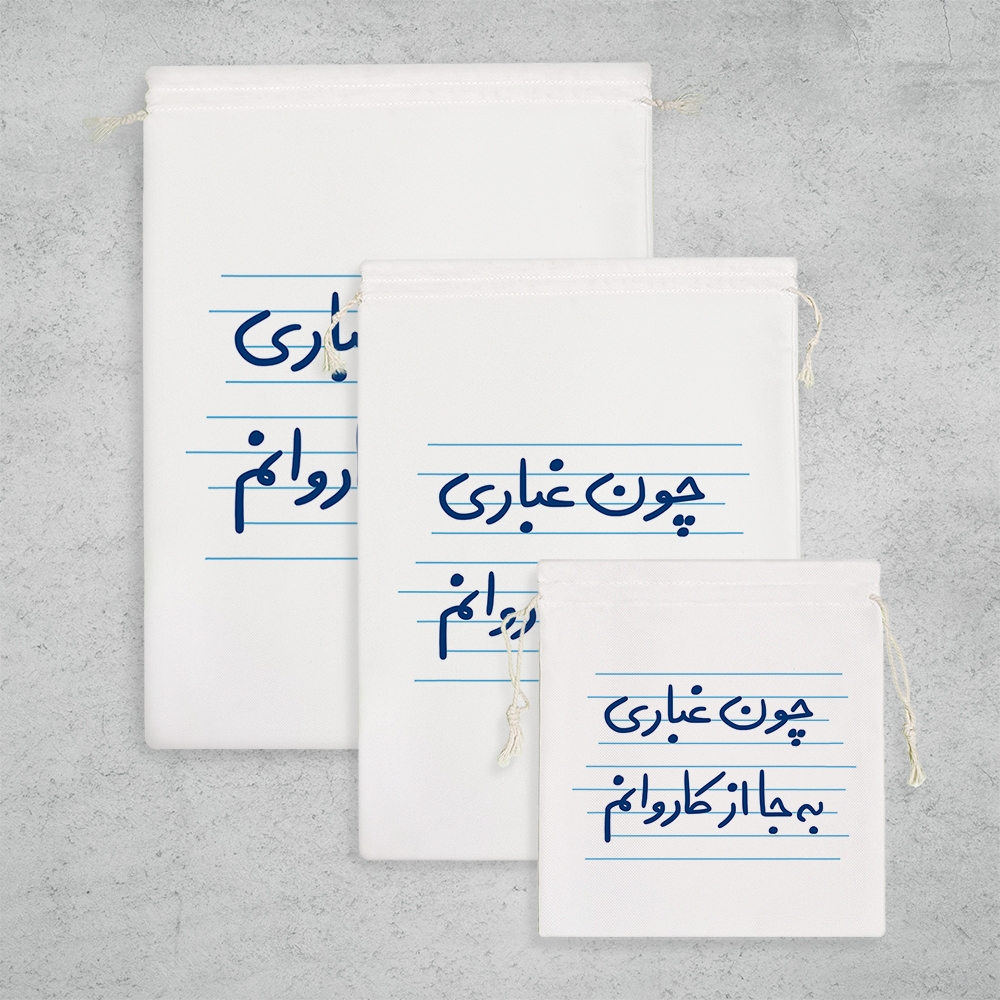 ‌باری
‌اروانم
چون غباری
‌روانم
چون غباری
به جا از کاروانم